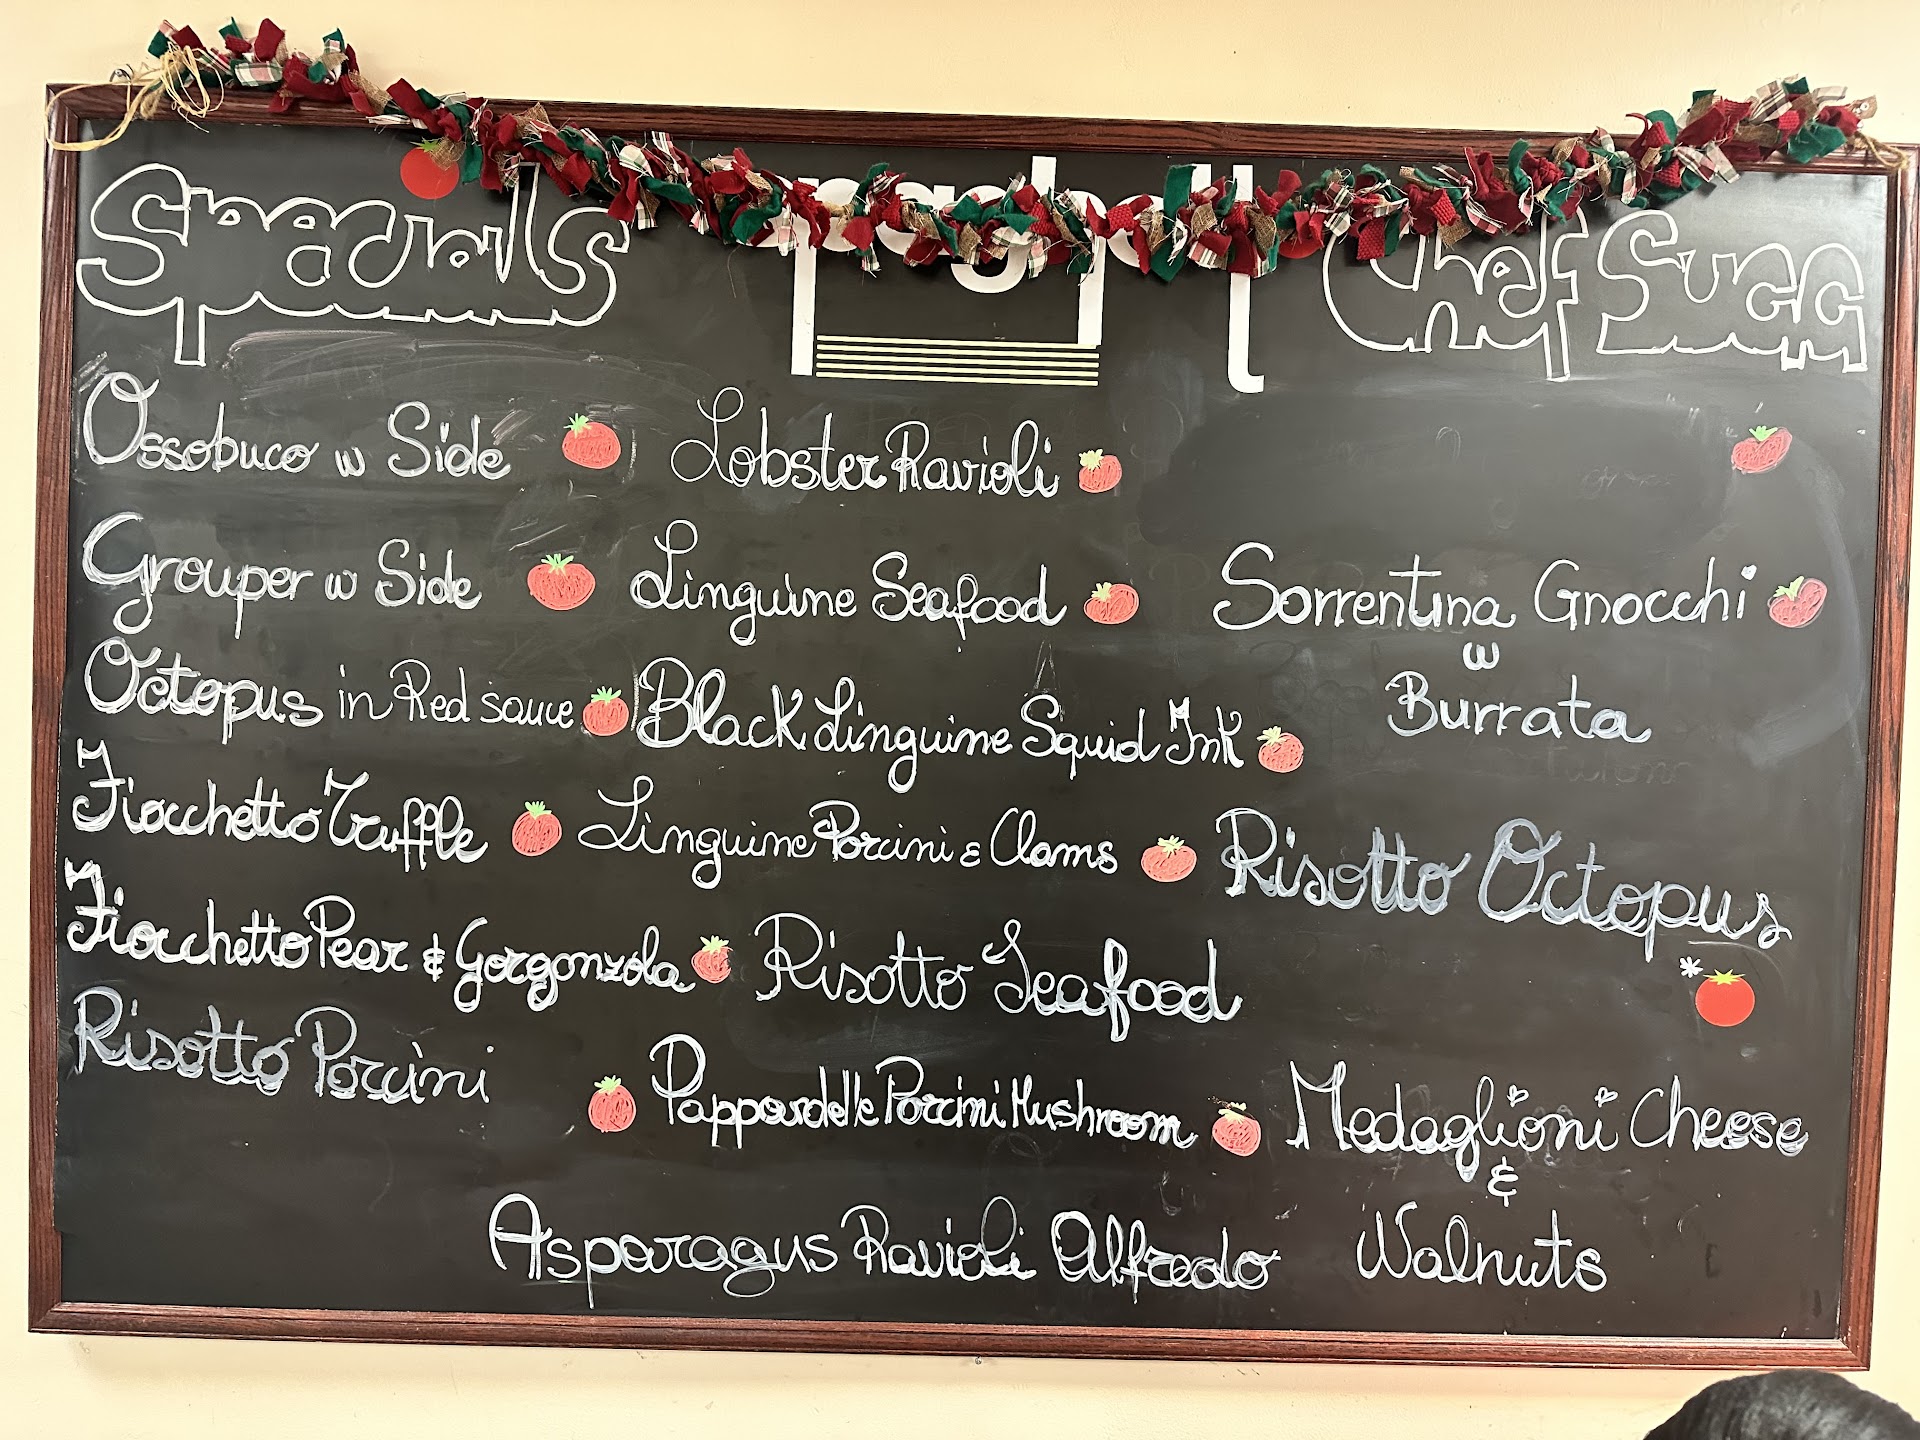 Specials
Chef Sugg
Ossobuco w Side
Lobster Ravioli
Grouper w Side
Linguine Seafood
Sorrentina Gnocchi
w
Burrata
Octopus in Red sauce
Black Linguine Squid Ink
Fiocchetto Truffle
Linguine Porcini & Clams
Risotto Octopus
Fiocchetto Pear & Gorgonzola
Risotto Seafood
Risotto Porcini
Pappardelle Porcini Mushroom
Medaglioni Cheese
&
Walnuts
Asparagus Ravioli Alfredo